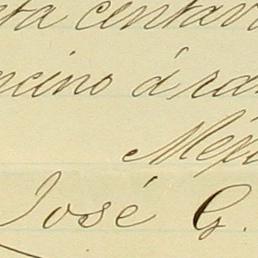 nta centav
ncino á raz
Méxi
José G.